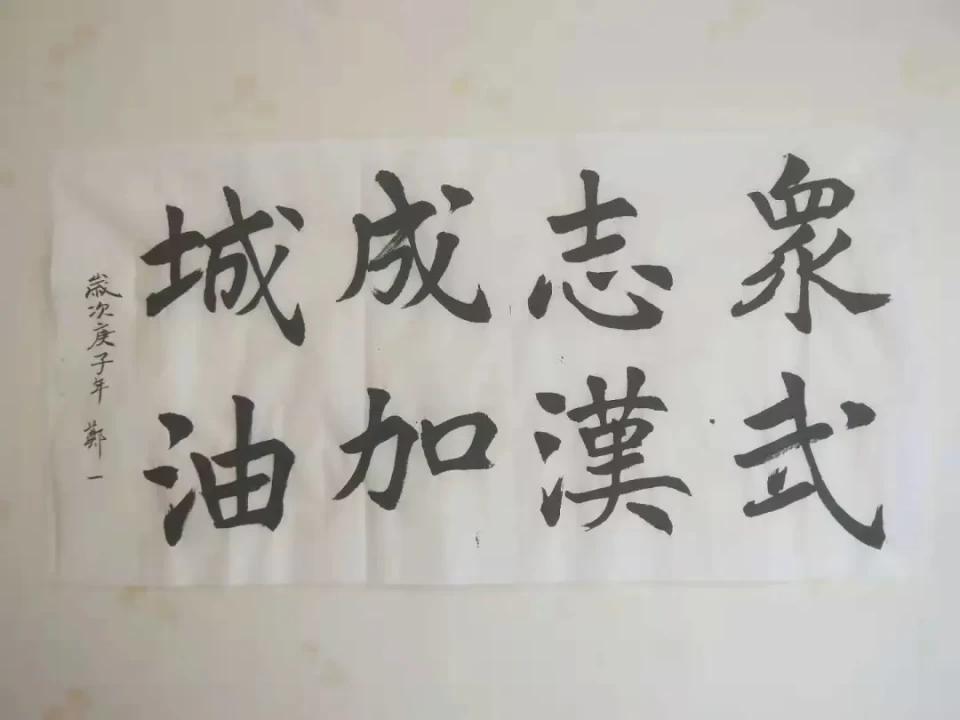 眾志成城
武漢加油
歲次庚子年 鄭一